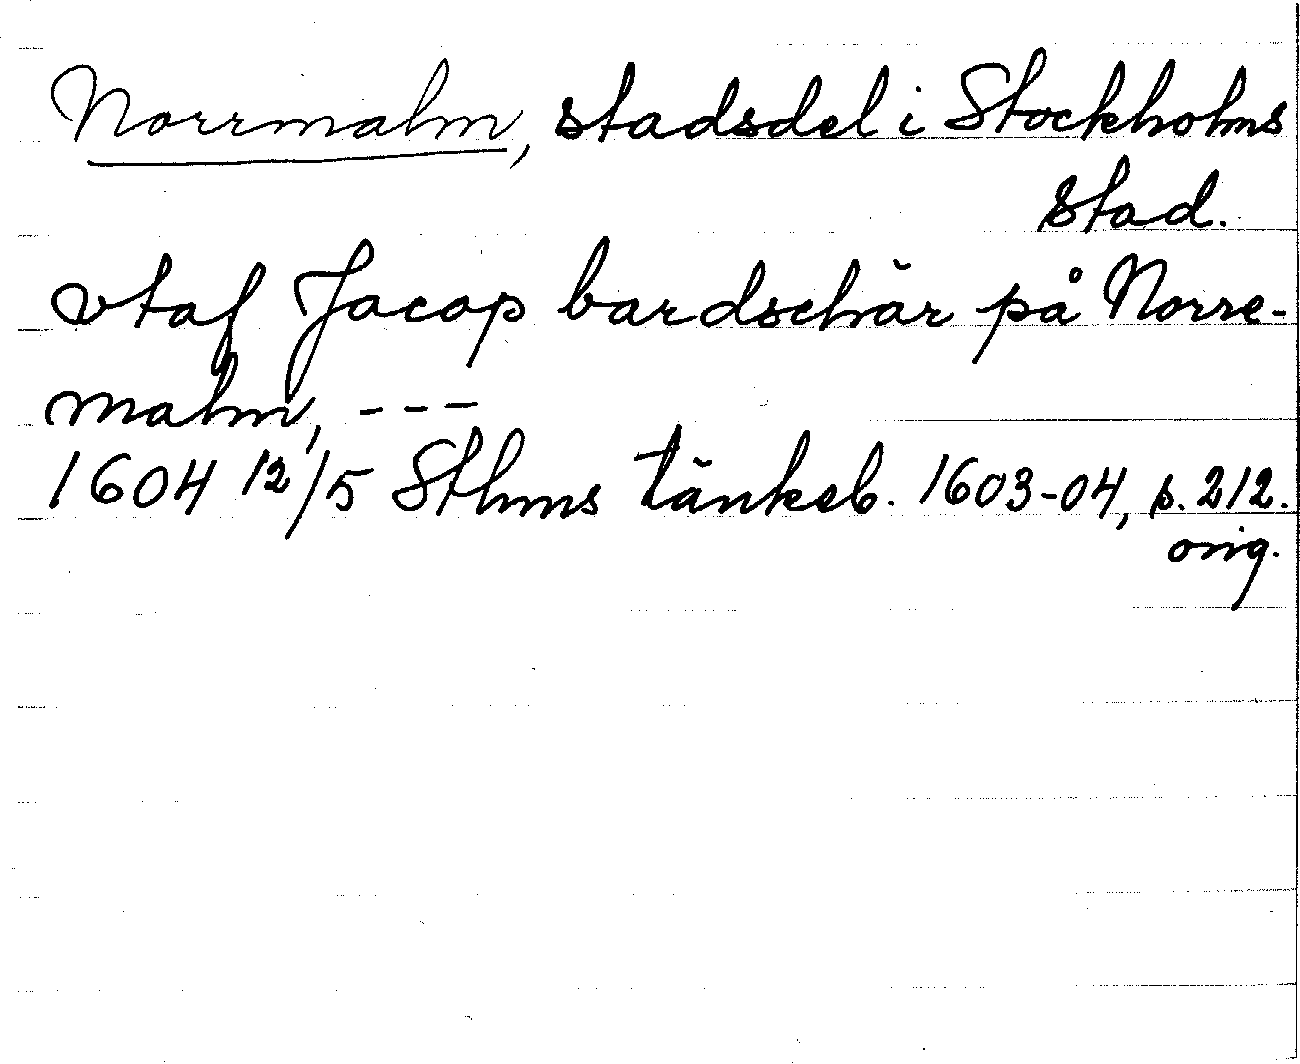 Norrmalm, stadsdel i Stockholms
stad.
vtaf Jacop bardschär på Norre-
malm, ---
1604 12/5 Sthms tänkeb. 1603-04, s. 212.
orig.